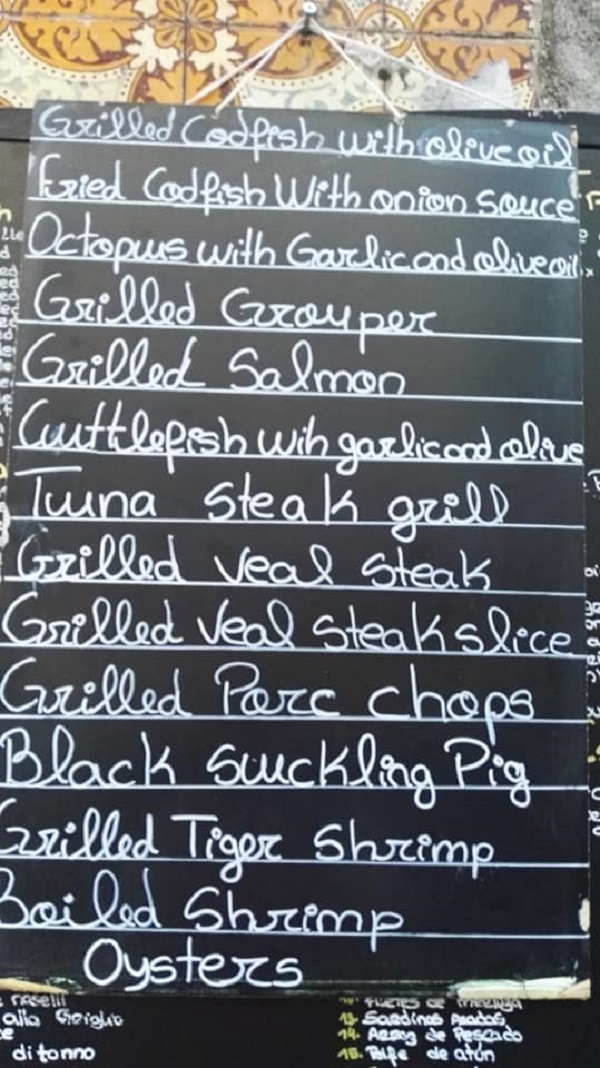 Grilled Codfish with olive oil
Fried Codfish With onion Souce
Octopus with Garlic and olive oil
Grilled Grouper
Grilled Salmon
Cuttlefish wih garlic and olive
Tuna Steak grill
Grilled Veal Steak
Grilled Veal Steak slice
Grilled Porc chops
Black Suckling Pig
Grilled Tiger Shrimp
Boiled Shrimp
Oysters
alla Griglia
di tonno
13. Sardinas Asadas
14. Arroz de Pescado
15. Bife de atún